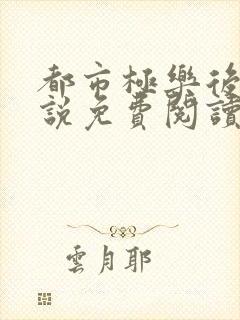 都市極樂後
說免費閱讀
雲月耶